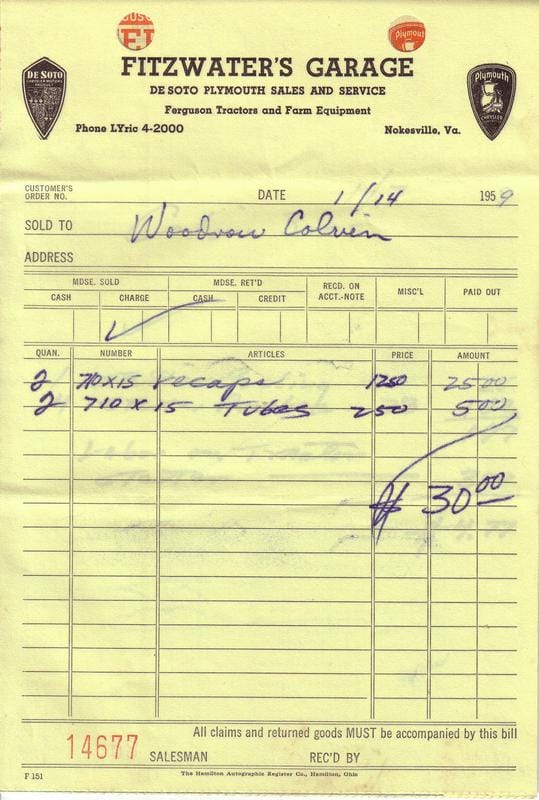 DE SOTO
Plymouth
Plymouth
CHRYSLER
FITZWATER'S GARAGE
DE SOTO PLYMOUTH SALES AND SERVICE
Ferguson Tractors and Farm Equipment
Phone LYric 4-2000 Nokesville, Va.
CUSTOMER'S
ORDER NO. DATE 1/14 1959
SOLD TO Woodrow Colvin
ADDRESS
MDSE. SOLD MDSE. RET'D RECD. ON ACCT.-NOTE MISC'L PAID OUT
CASH CHARGE CASH CREDIT
QUAN. NUMBER ARTICLES PRICE AMOUNT
2 710x15 recaps 12 50 25 00
2 710 x 15 Tubes 2 50 5 00
$ 30 00
All claims and returned goods MUST be accompanied by this bill
14677 SALESMAN REC'D BY
F 151 The Hamilton Autographic Register Co., Hamilton, Ohio